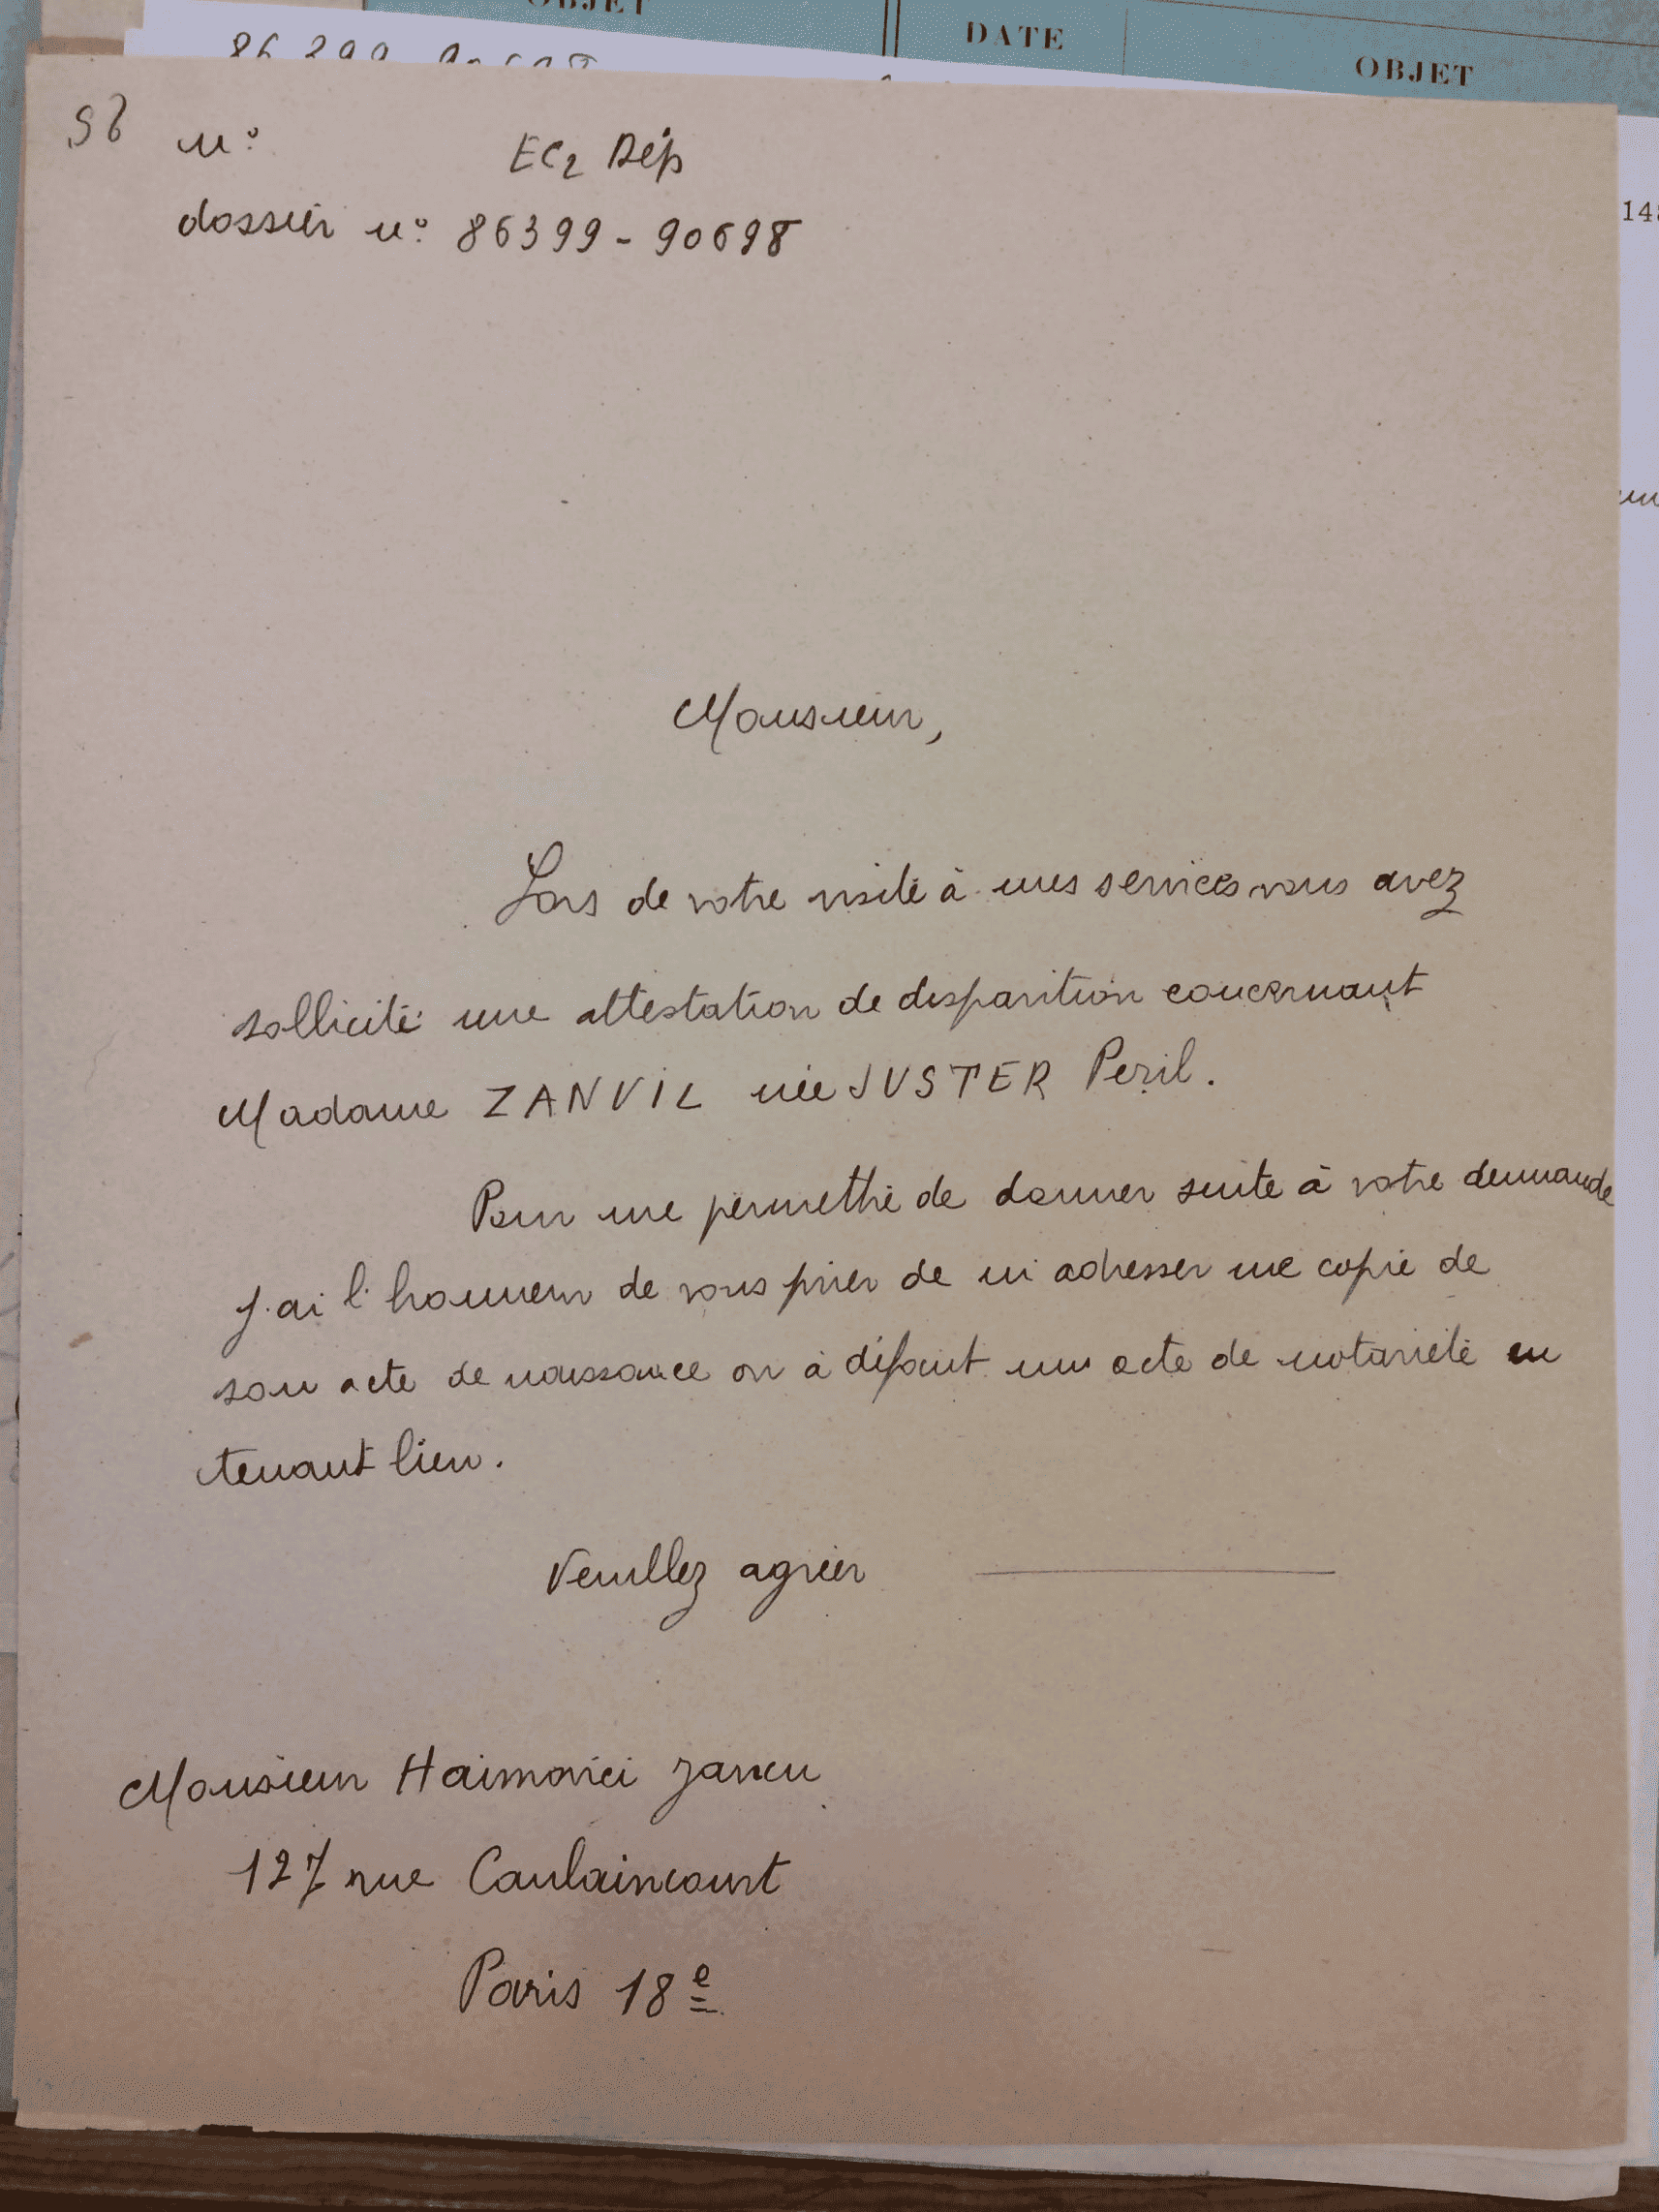 OBJET
DATE
OBJET
86 399 90698
n°
EC2 Dép
dossier n° 86399 - 90698
148
Monsieur,
Lors de votre visite à mes services vous avez
sollicité une attestation de disparition concernant
Madame ZANVIL née JUSTER Peril.
Pour me permettre de donner suite à votre demande
j'ai l'honneur de vous prier de m'adresser une copie de
son acte de naissance ou à défaut un acte de notoriété en
tenant lieu.
Veuillez agréer
Monsieur Haimovici Jancu
127 rue Caulaincourt
Paris 18e